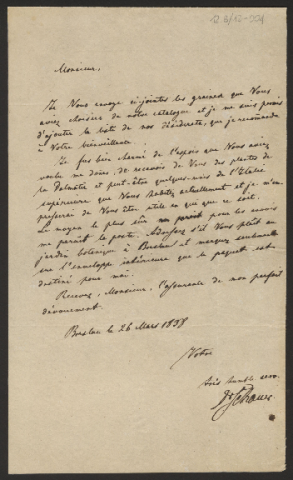 Monsieur,
Je Vous envoye ci-jointes les graines que Vous
aviez choisies de notre catalogue et je me suis permis
d'ajouter la liste de nos désiderata, que je recommande
à Votre bienveillance.
Je fus bien charmé de l'espoir que Vous avez
voulu me donner, de recevoir de Vous des plantes de
la Dalmatie et peut-être quelques-unes de l'Italie
supérieure que Vous habitez actuellement et je m'em
presserai de Vous être utile en qui que ce soit.
Le moyen le plus sûr me parait pour les envois
me parait la poste. Adressez s'il Vous plaît au
jardin botanique à Breslau et marquez seulement
sur l'enveloppe intérieure que le paquet est
destiné pour moi.
Recevez, Monsieur, l'assurance de mon parfait
dévouement.
Breslau le 26 Mars 1838
Votre
très humble serv.
Dr Schauer